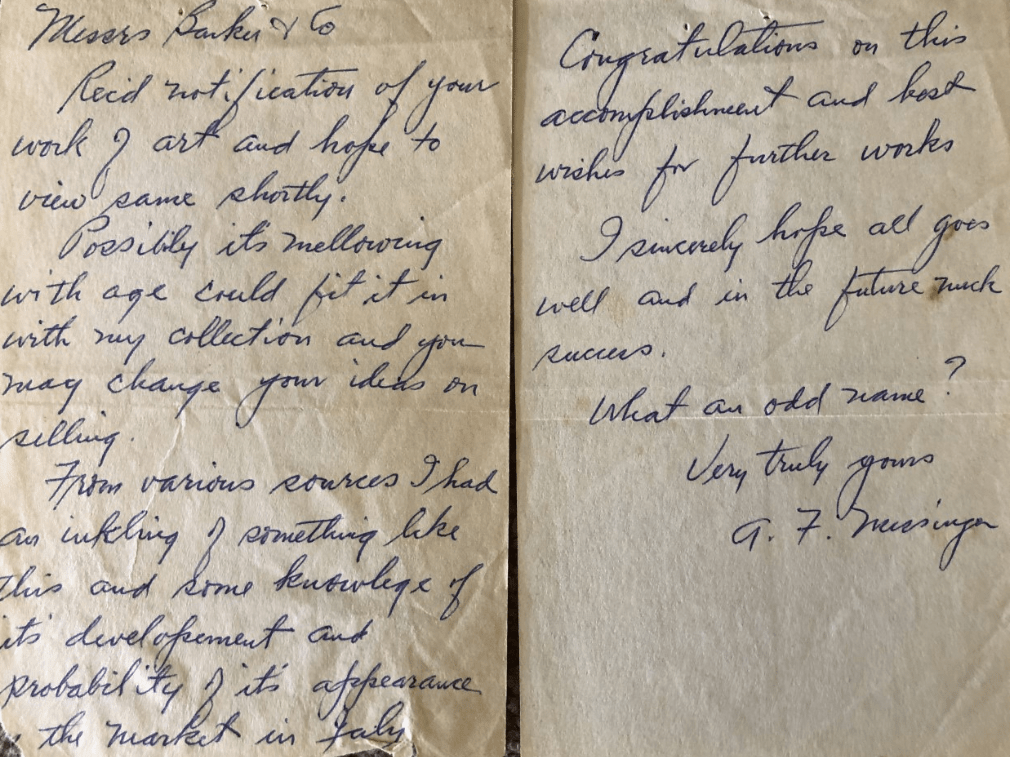 Messrs Barker & Co
Rec'd notification of your
work of art and hope to
view same shortly.
Possibily it's mellowing
with age could fit it in
with my collection and you
may change your ideas on
selling.
From various sources I had
an inkling of something like
this and some knowlege of
it's developement and
probability of it's appearance
the market in
Congratulations on this
accomplishment and best
wishes for further works
I sincerely hope all goes
well and in the future much
success.
What an odd name?
Very truly yours
A. F.